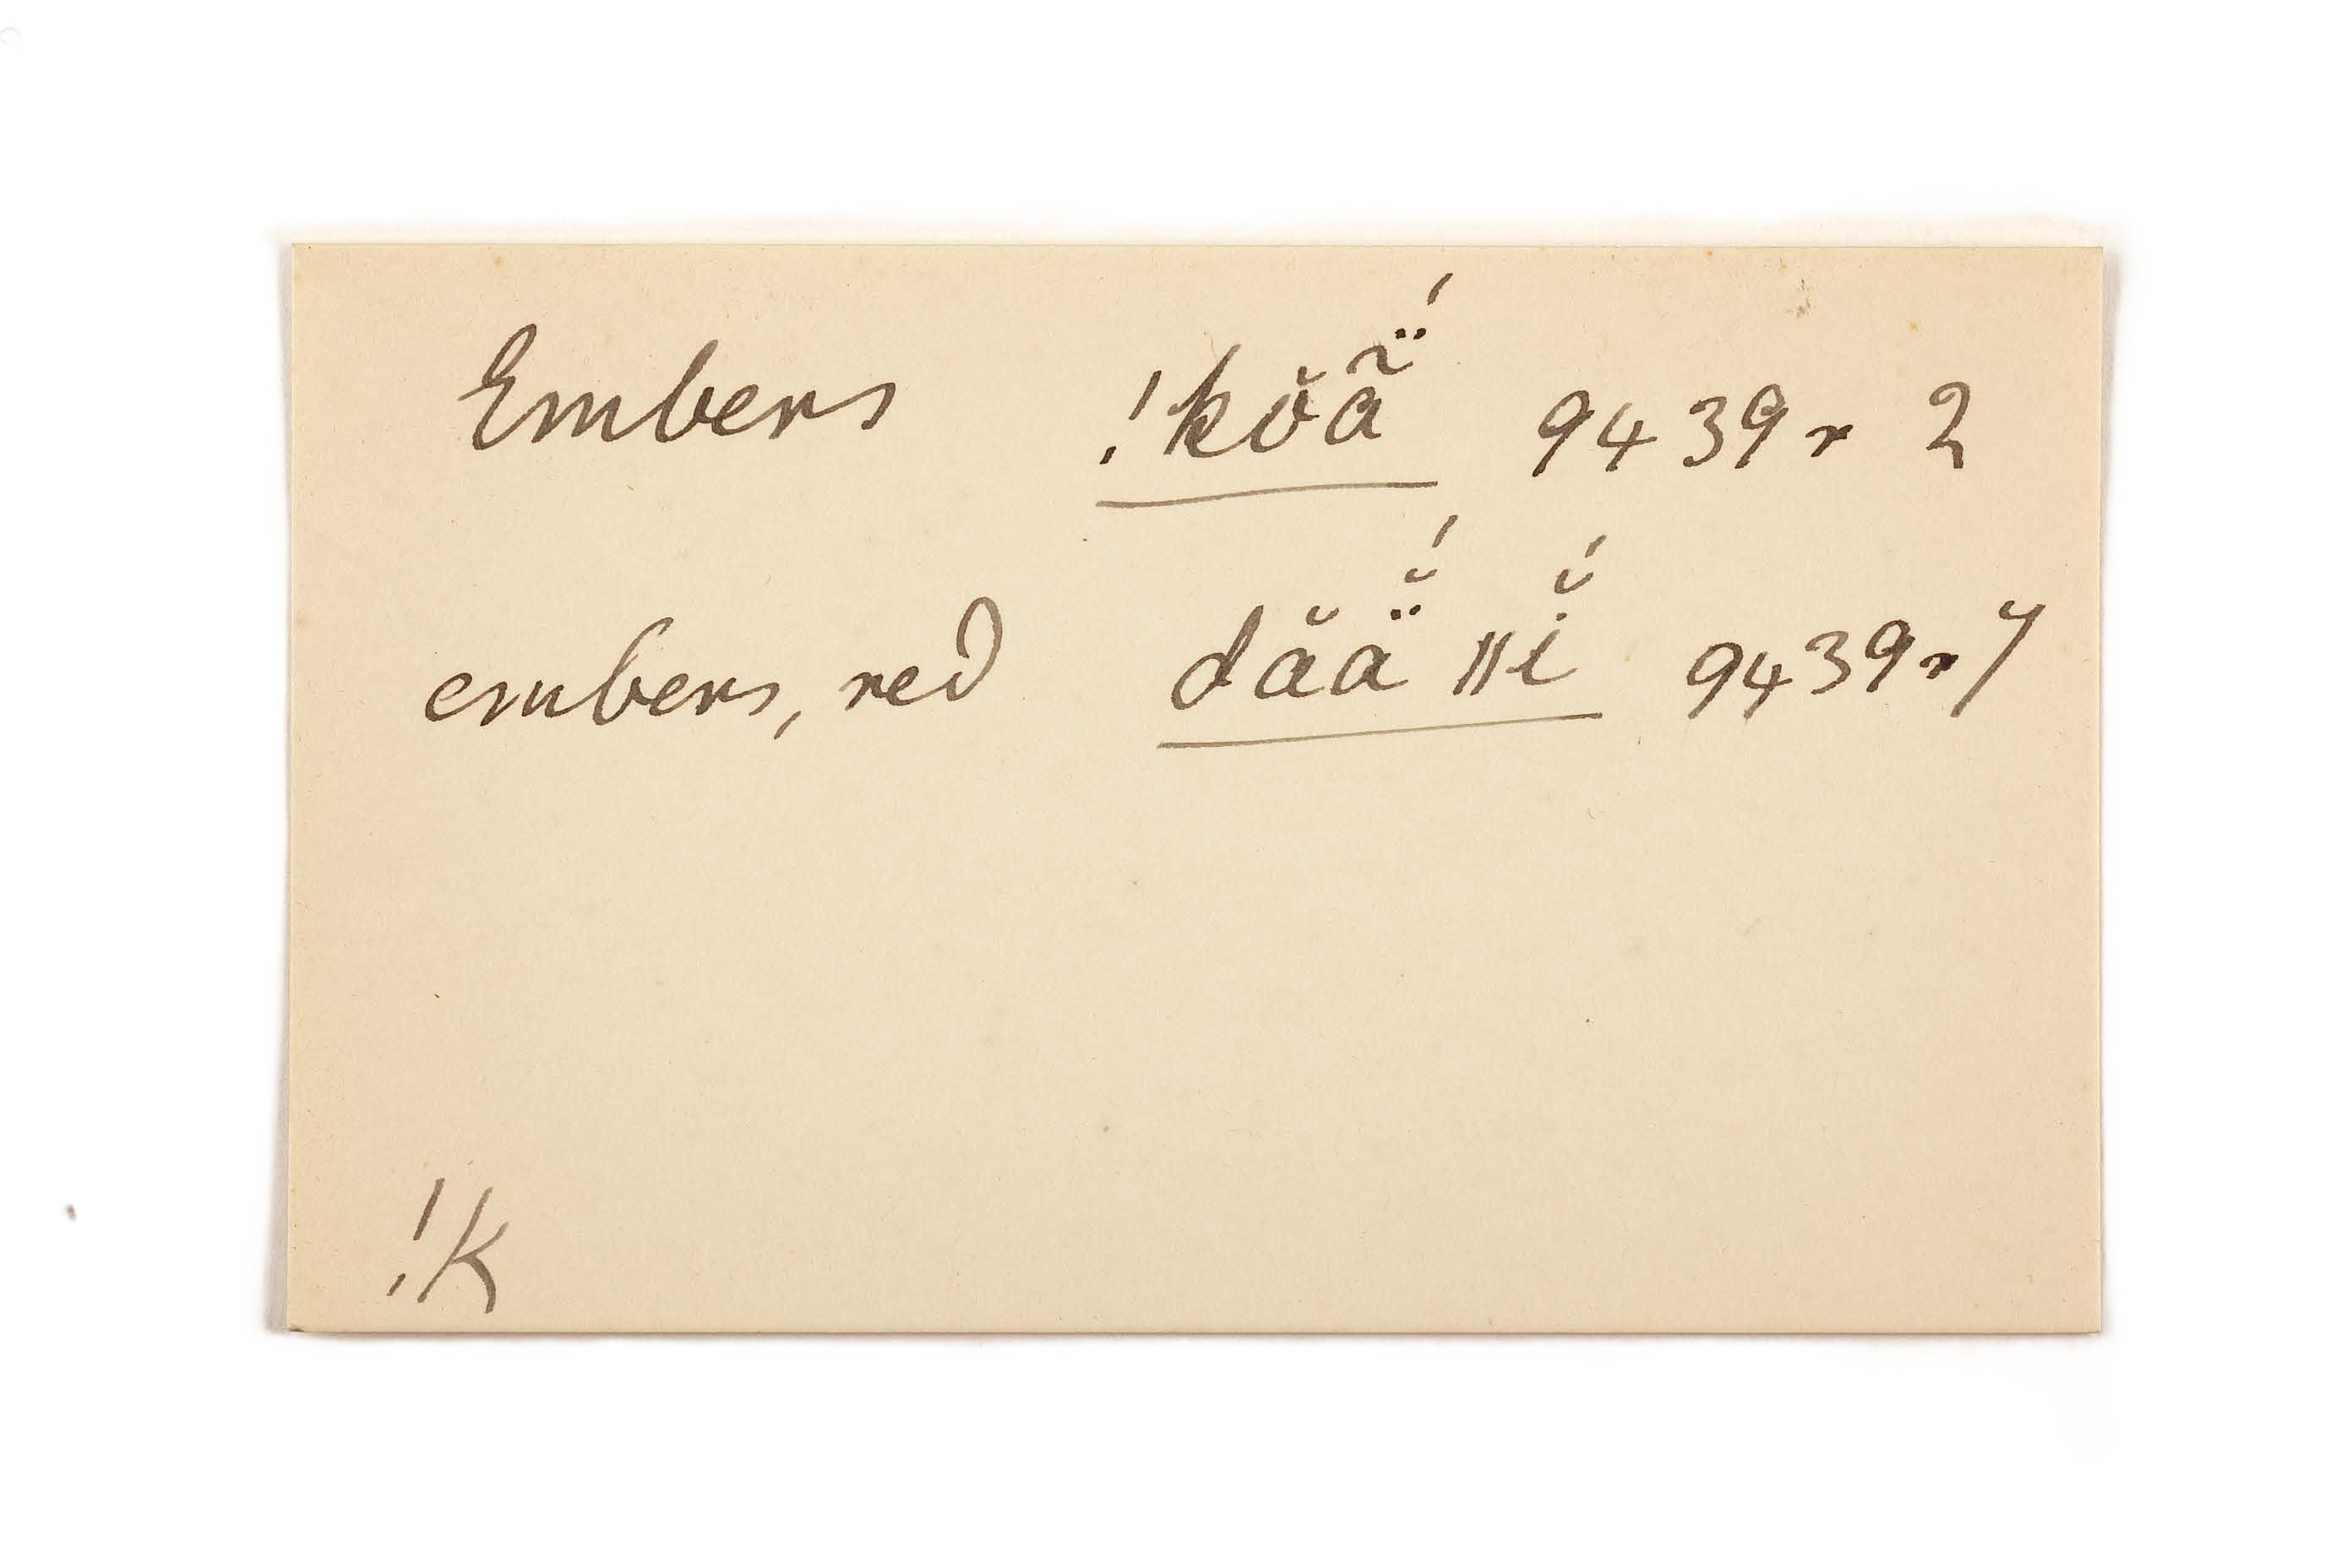 Embers !kŏã̈́ 9439r 2
embers, red dăä̆́ ǁĭ́ 9439r 7
!K